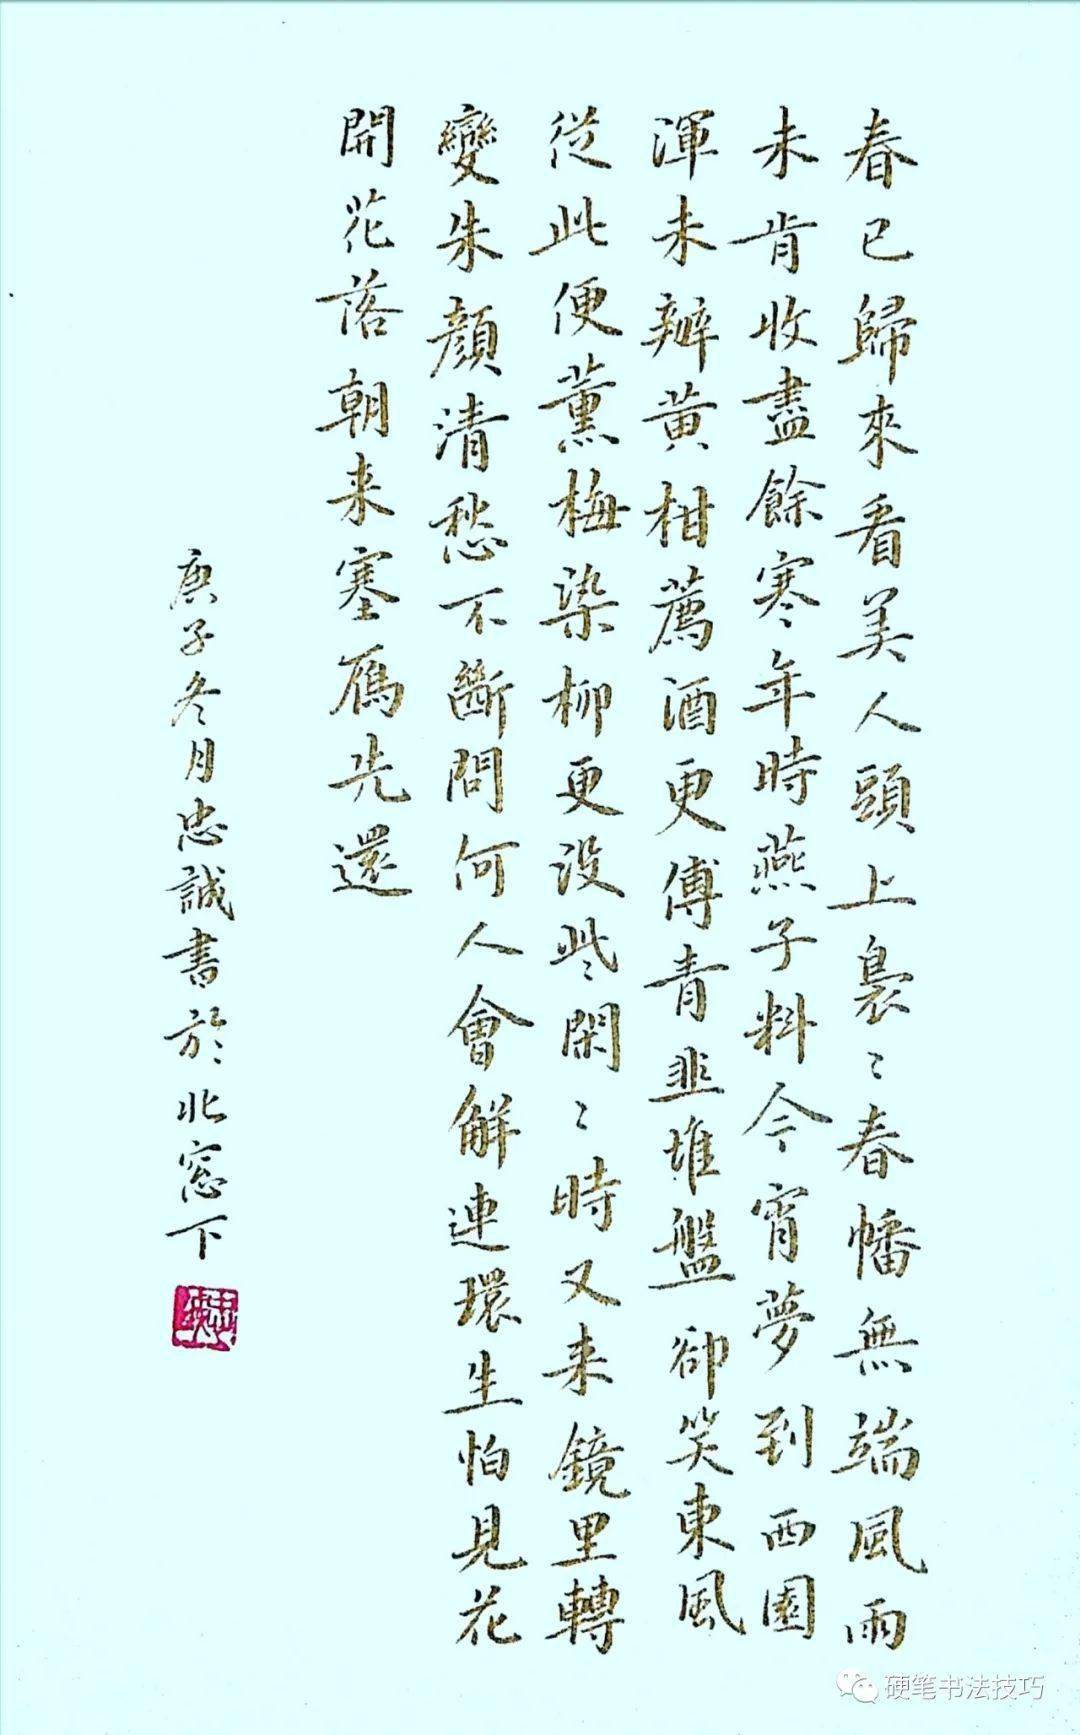 春已歸來看美人頭上裊〻春幡無端風雨
未肯收盡餘寒年時燕子料今宵夢到西園
渾未辦黄柑薦酒更傳青韭堆盤卻笑東風
從此便薰梅染柳更没些閑〻時又来鏡里轉
變朱顔清愁不斷問何人會解連環生怕見花
開花落朝来塞雁先還
庚子冬月忠誠書於北窓下
硬笔书法技巧